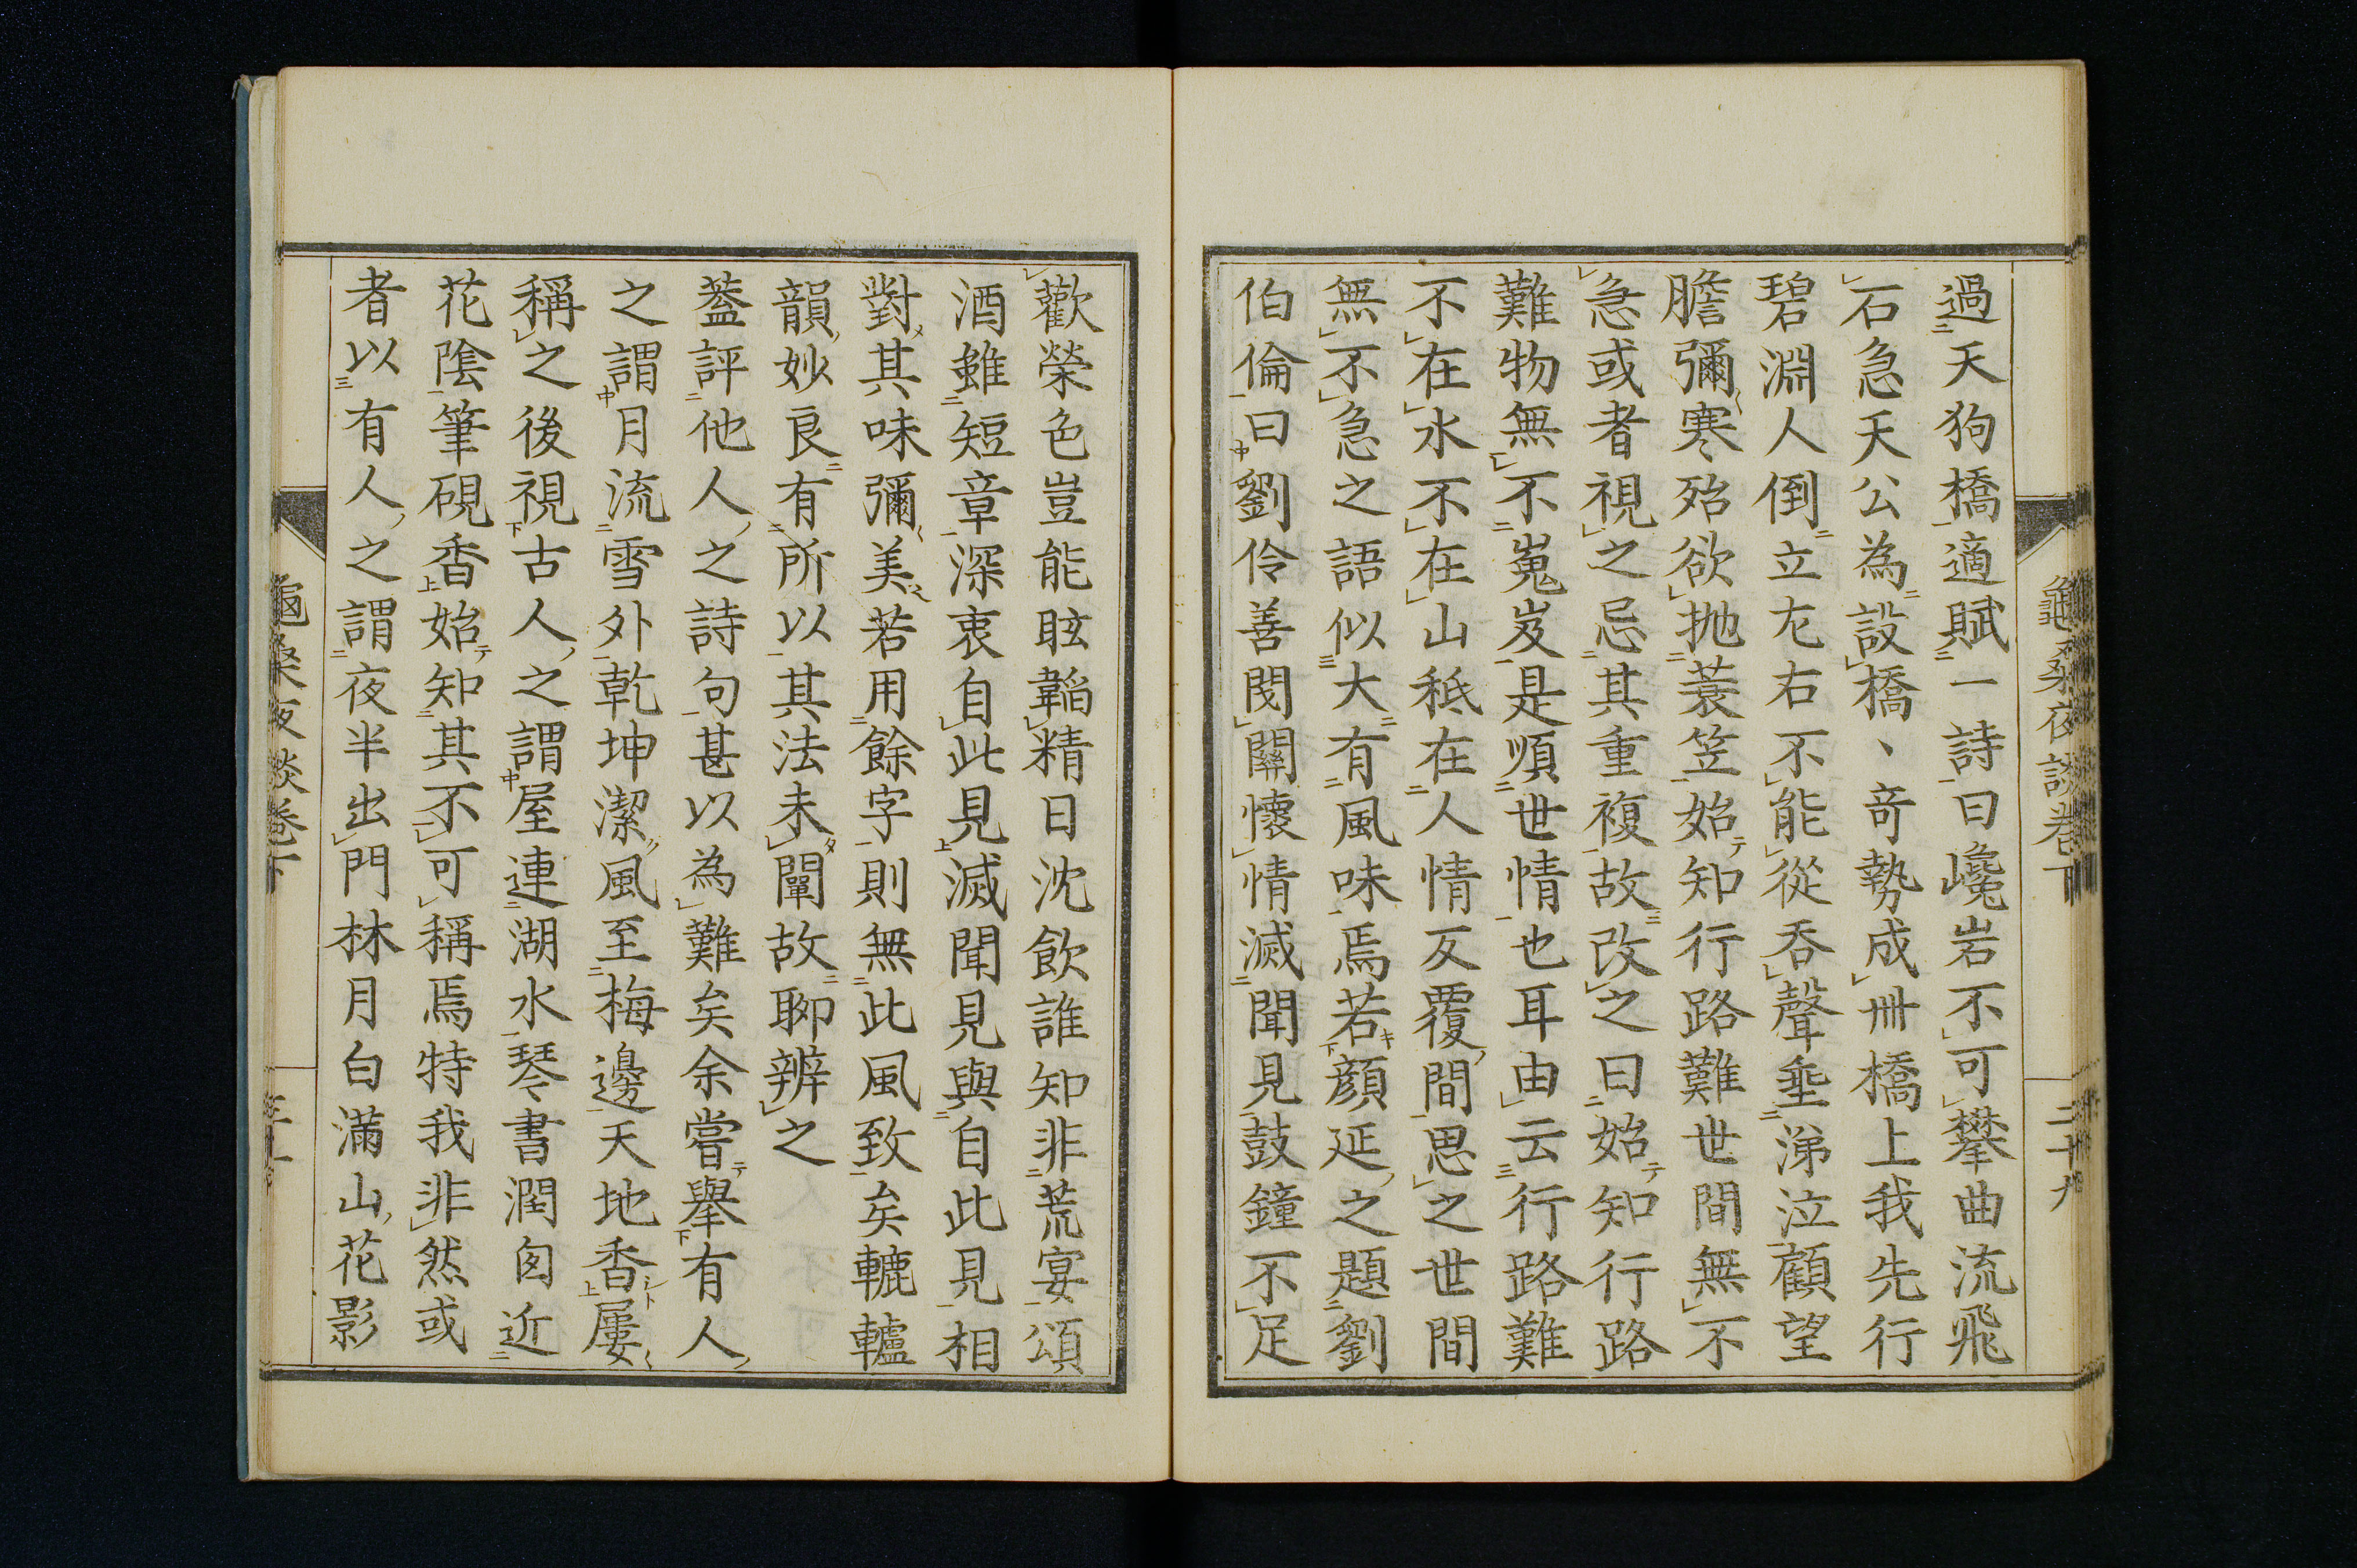 龜桑夜談卷下
二十九
過天狗橋適賦一詩曰巉岩不可攀曲流飛
石急天公為設橋、奇勢成卌橋上我先行
碧淵人倒立左右不能從吞聲垂涕泣顧望
膽彌寒殆欲拋蓑笠始知行路難世間無不
急或者視之忌其重複故改之曰始知行路
難物無不嵬岌是順世情也耳由云行路難
不在水不在山秪在人情反覆間思之世間
無不急之語似大有風味焉若顏延之題劉
伯倫曰劉伶善閔關懷情滅聞見鼓鐘不足
歡榮色豈能眩韜精日沈飲誰知非荒宴頌
酒雖短章深衷自此見滅聞見與自此見相
對其味彌美若用餘字則無此風致矣轆轤
韻妙良有所以其法未闡故聊辨之
蓋評他人之詩句甚以為難矣余嘗舉有人
之謂月流雪外乾坤潔風至梅邊天地香屢
稱之後視古人之謂屋連湖水琴書潤囱近
花陰筆硯香始知其不可稱焉特我非然或
者以有人之謂夜半出門林月白滿山花影
龜桑夜談卷下